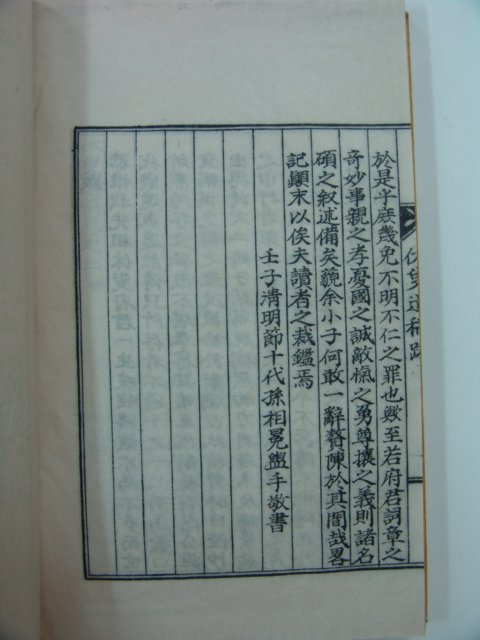 於是乎庶幾免不明不仁之罪也歟至若府君詞章之
奇妙事親之孝憂國之誠敵愾之勇尊攘之義則諸名
碩之叙述備矣藐余小子何敢一辭贅陳於其間哉畧
記顚末以俟夫讀者之裁鑑焉
壬子淸明節十代孫相冕盥手敬書
遺稿跋